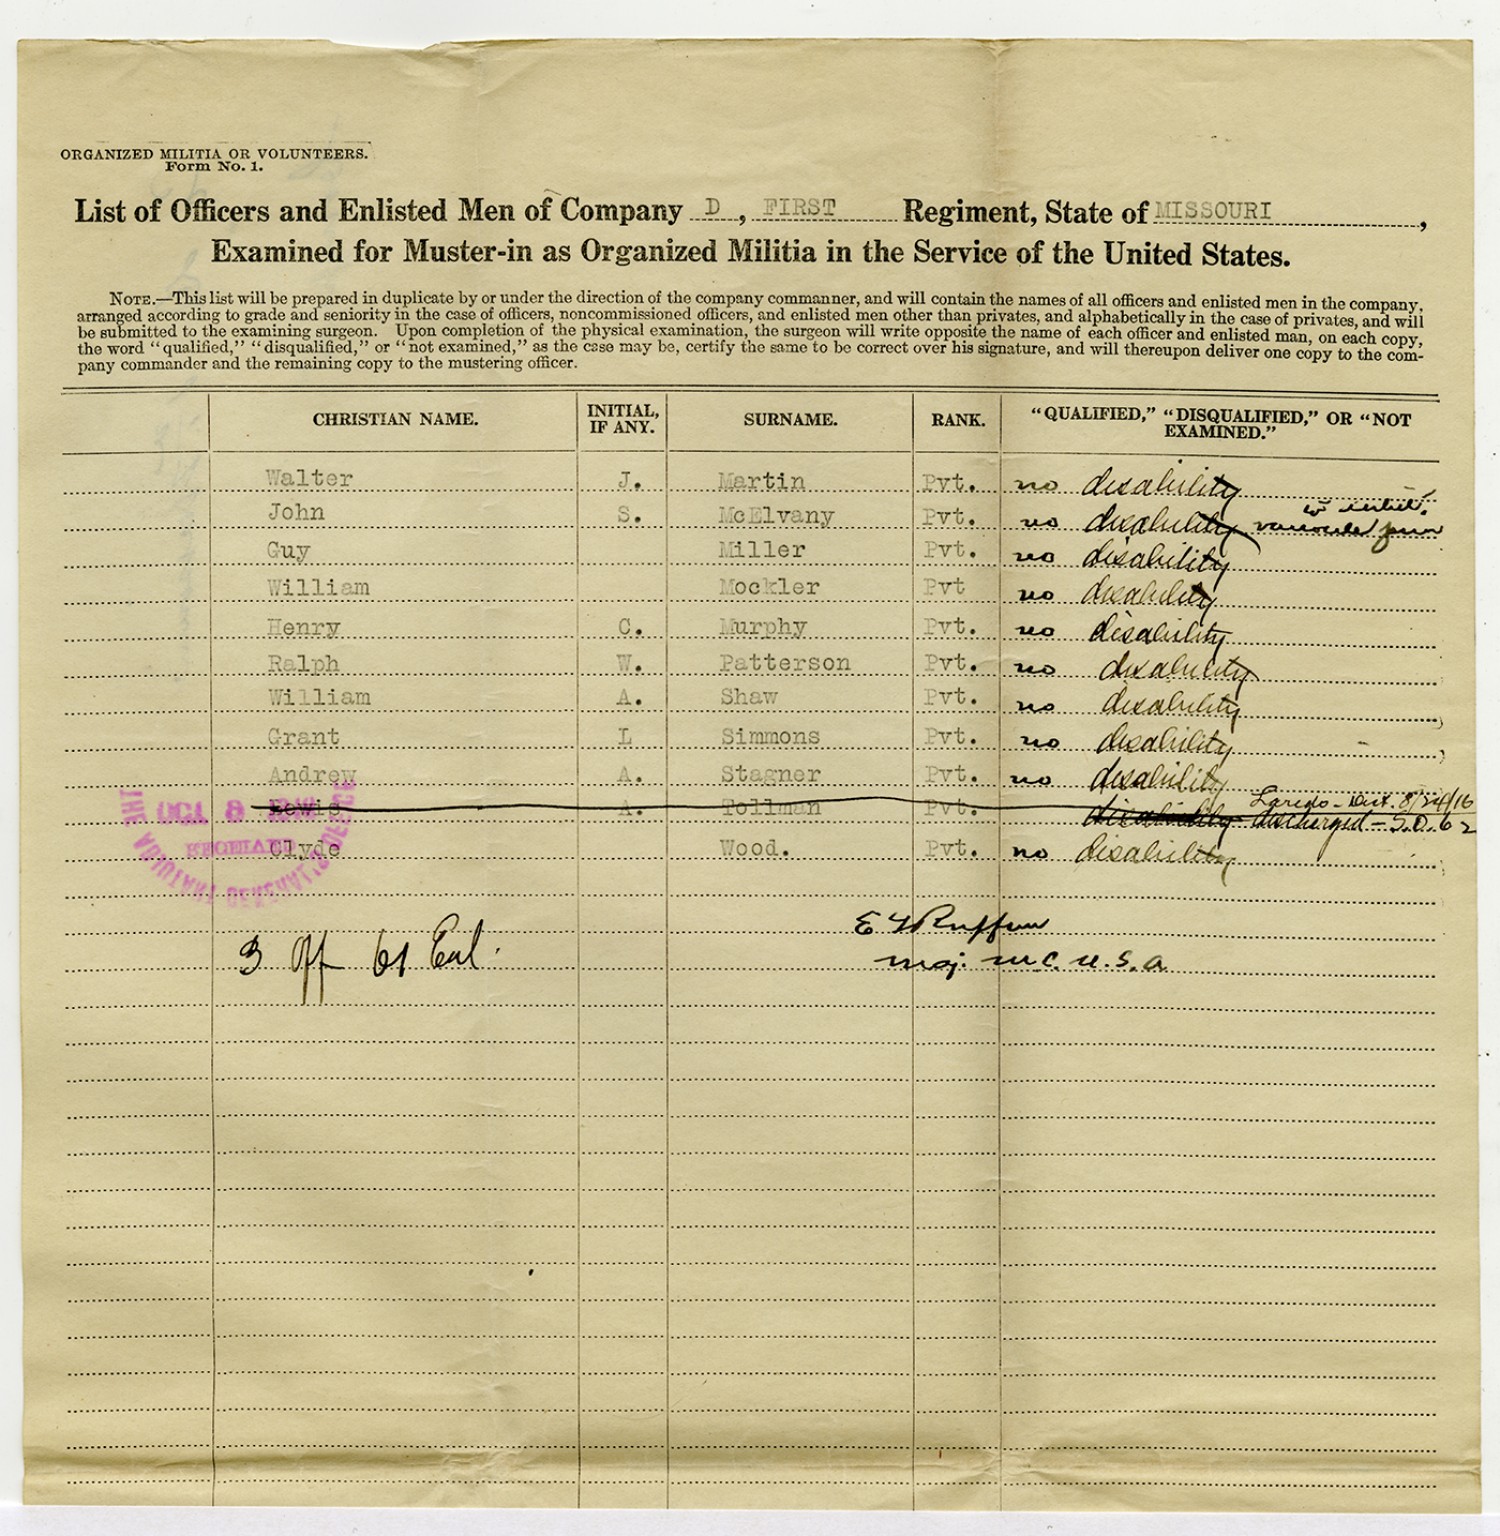 ORGANIZED MILITIA OR VOLUNTEERS.
Form No. 1.
List of Officers and Enlisted Men of Company D, FIRST Regiment, State of MISSOURI,
Examined for Muster-in as Organized Militia in the Service of the United States.
NOTE.—This list will be prepared in duplicate by or under the direction of the company commanner, and will contain the names of all officers and enlisted men in the company,
arranged according to grade and seniority in the case of officers, noncommissioned officers, and enlisted men other than privates, and alphabetically in the case of privates, and will
be submitted to the examining surgeon. Upon completion of the physical examination, the surgeon will write opposite the name of each officer and enlisted man, on each copy,
the word “qualified,” “disqualified,” or “not examined,” as the case may be, certify the same to be correct over his signature, and will thereupon deliver one copy to the com-
pany commander and the remaining copy to the mustering officer.
CHRISTIAN NAME. INITIAL, IF ANY. SURNAME. RANK. “QUALIFIED,” “DISQUALIFIED,” OR “NOT EXAMINED.”
Walter J. Martin Pvt. no disability
John S. McElvany Pvt. no disability
Guy Miller Pvt. no disability
William Mockler Pvt no disability
Henry C. Murphy Pvt. no disability
Ralph W. Patterson Pvt. no disability
William A. Shaw Pvt. no disability
Grant L Simmons Pvt. no disability
Andrew A. Stagner Pvt. no disability
Lewis A. Tollman Pvt. disability Laredo - 8/24/16
discharged - S.O. 62
Clyde Wood. Pvt. no disability
THE ADJUTANT GENERAL'S OFFICE
RECEIVED
E Ruffner
3 Off 61 Enl.
Maj. M C. U.S.A